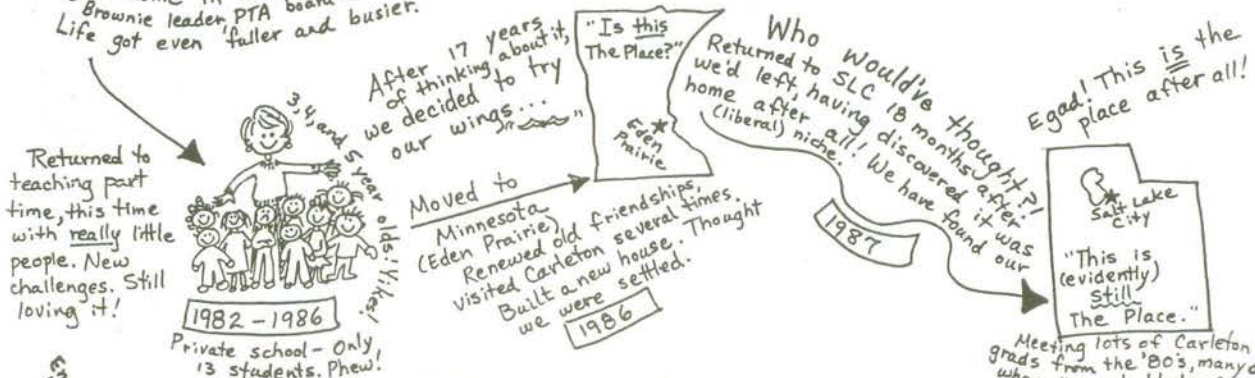 Brownie leader, PTA board
Life got even fuller and busier.
Returned to
teaching part
time, this time
with really little
people. New
challenges. Still
loving it!
3, 4, and 5 year olds! Yikes!
1982 – 1986
Private school – Only
13 students. Phew!
After 17 years
of thinking about it,
we decided to try
our wings...
Moved to
Minnesota
(Eden Prairie)
Renewed old friendships,
visited Carleton several times.
Built a new house. Thought
we were settled.
1986
"Is this
The Place?"
Eden
Prairie
Who would've thought?!
Returned to SLC 18 months after
we'd left, having discovered it was
home after all! We have found our
(liberal) niche.
1987
Egad! This is the
place after all!
Salt Lake
City
"This is
(evidently)
still
The Place."
Meeting lots of Carleton
grads from the '80's, many